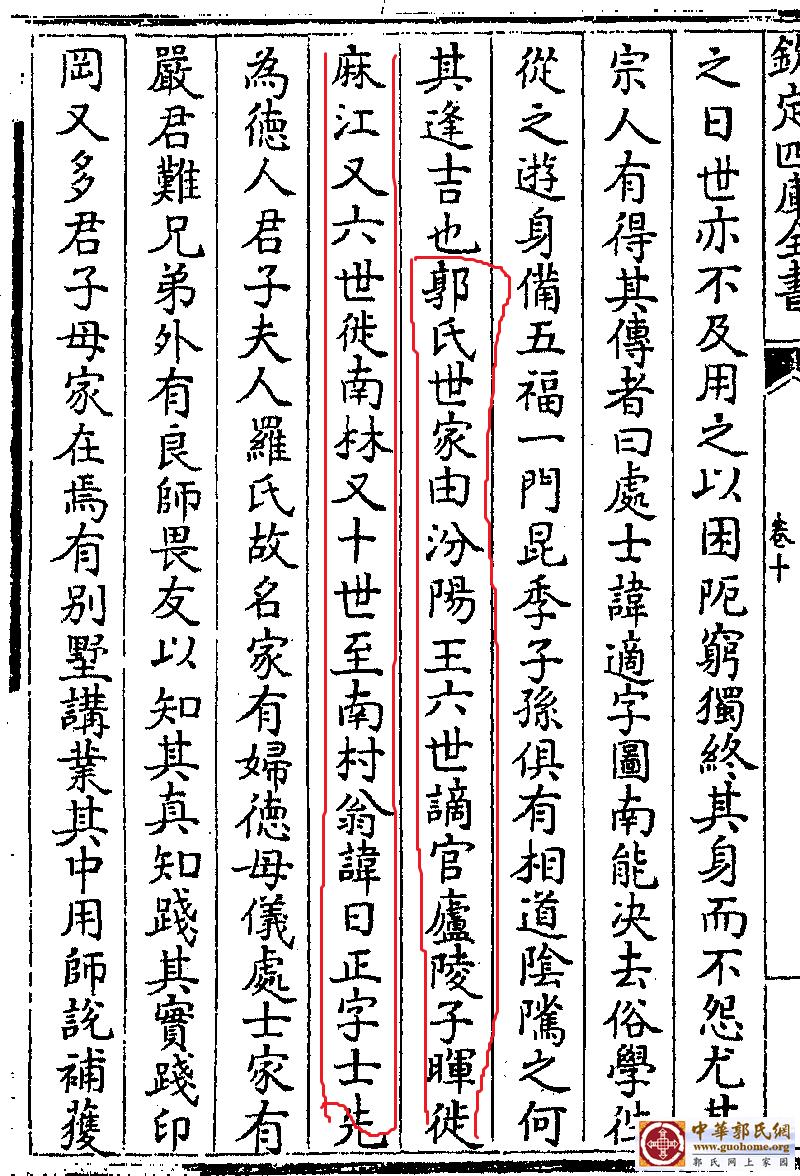 欽定四庫全書
卷十
之日世亦不及用之以困阨窮獨終其身而不怨尤其
宗人有得其傳者曰處士諱適字圖南能决去俗學從
從之遊身備五福一門昆季子孫俱有相道陰隲之何
其逢吉也郭氏世家由汾陽王六世謫官廬陵子暉徙
麻江又六世徙南林又十世至南村翁諱曰正字士先
為徳人君子夫人羅氏故名家有婦徳母儀處士家有
嚴君難兄弟外有良師畏友以知其真知踐其實踐印
岡又多君子母家在焉有别墅講業其中用師說補獲
中華郭氏網
www.guohome.org
郭氏網上家園